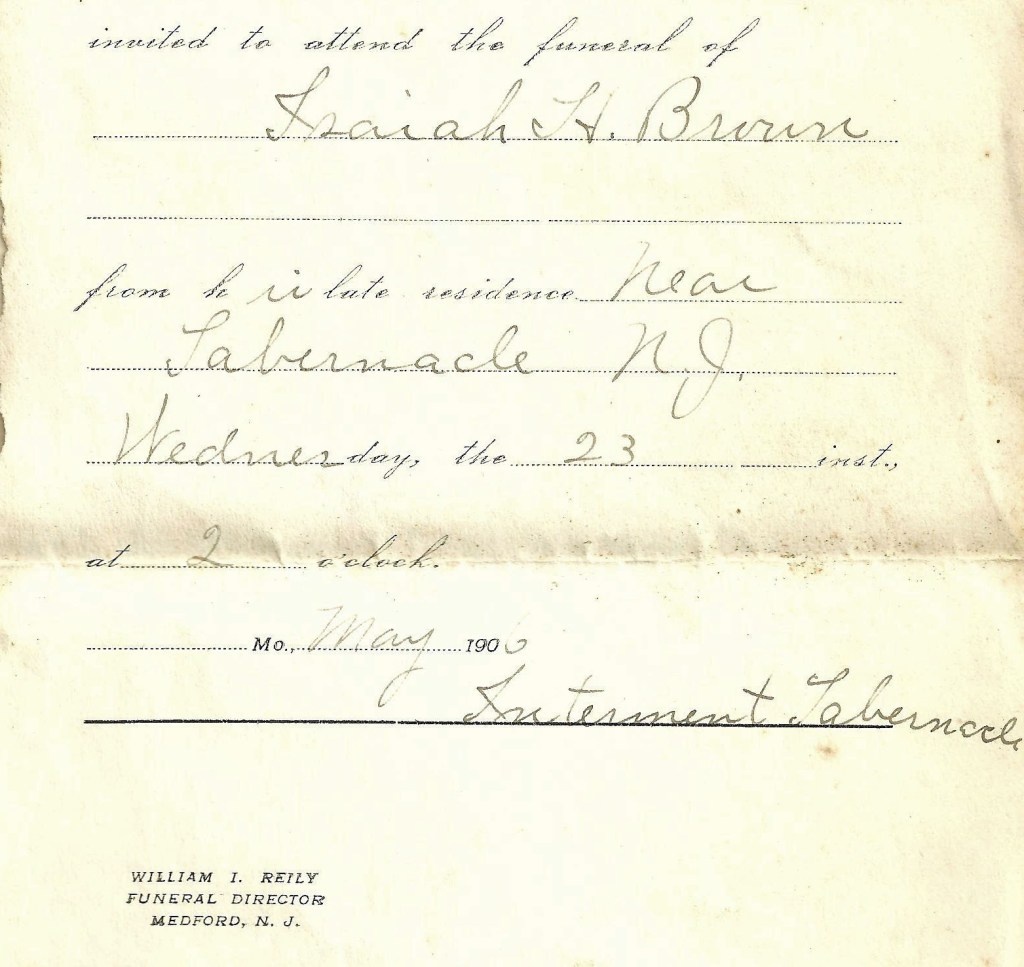 invited to attend the funeral of
Isaiah H. Brown
from his late residence Near
Tabernacle N.J.
Wednesday, the 23 inst.,
at 2 o'clock.
Mo., May 1906
Interment Tabernacle
WILLIAM I. REILY
FUNERAL DIRECTOR
MEDFORD, N. J.